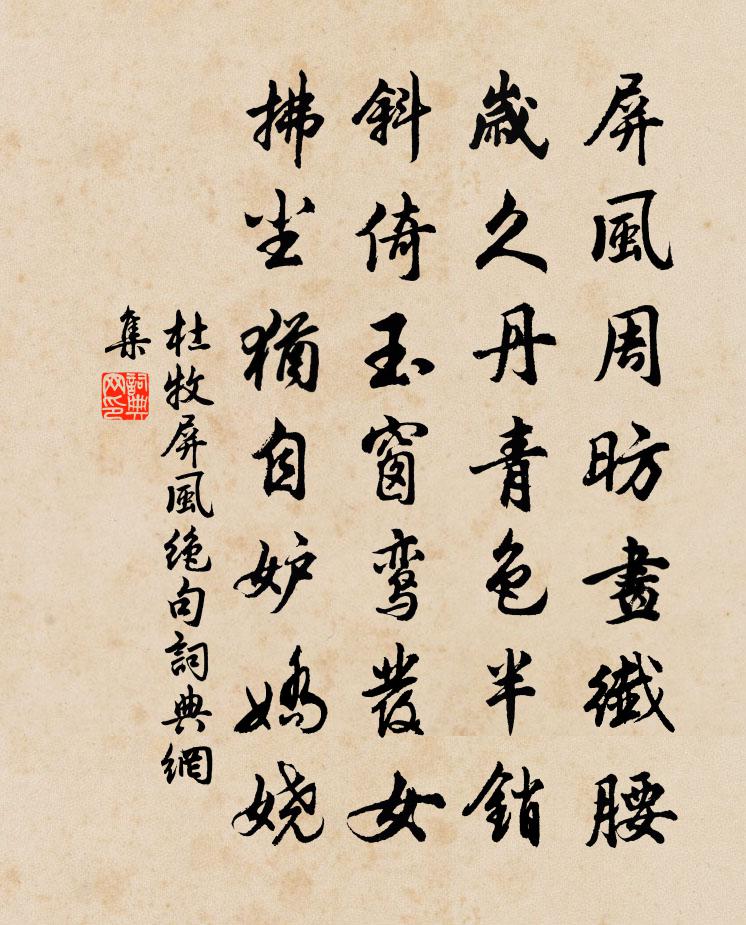 屏風周昉畫纖腰
歲久丹青色半銷
斜倚玉窗鸾發女
拂尘猶自妒嬌娆
杜牧屏風绝句詞典網
集
詞典
网印